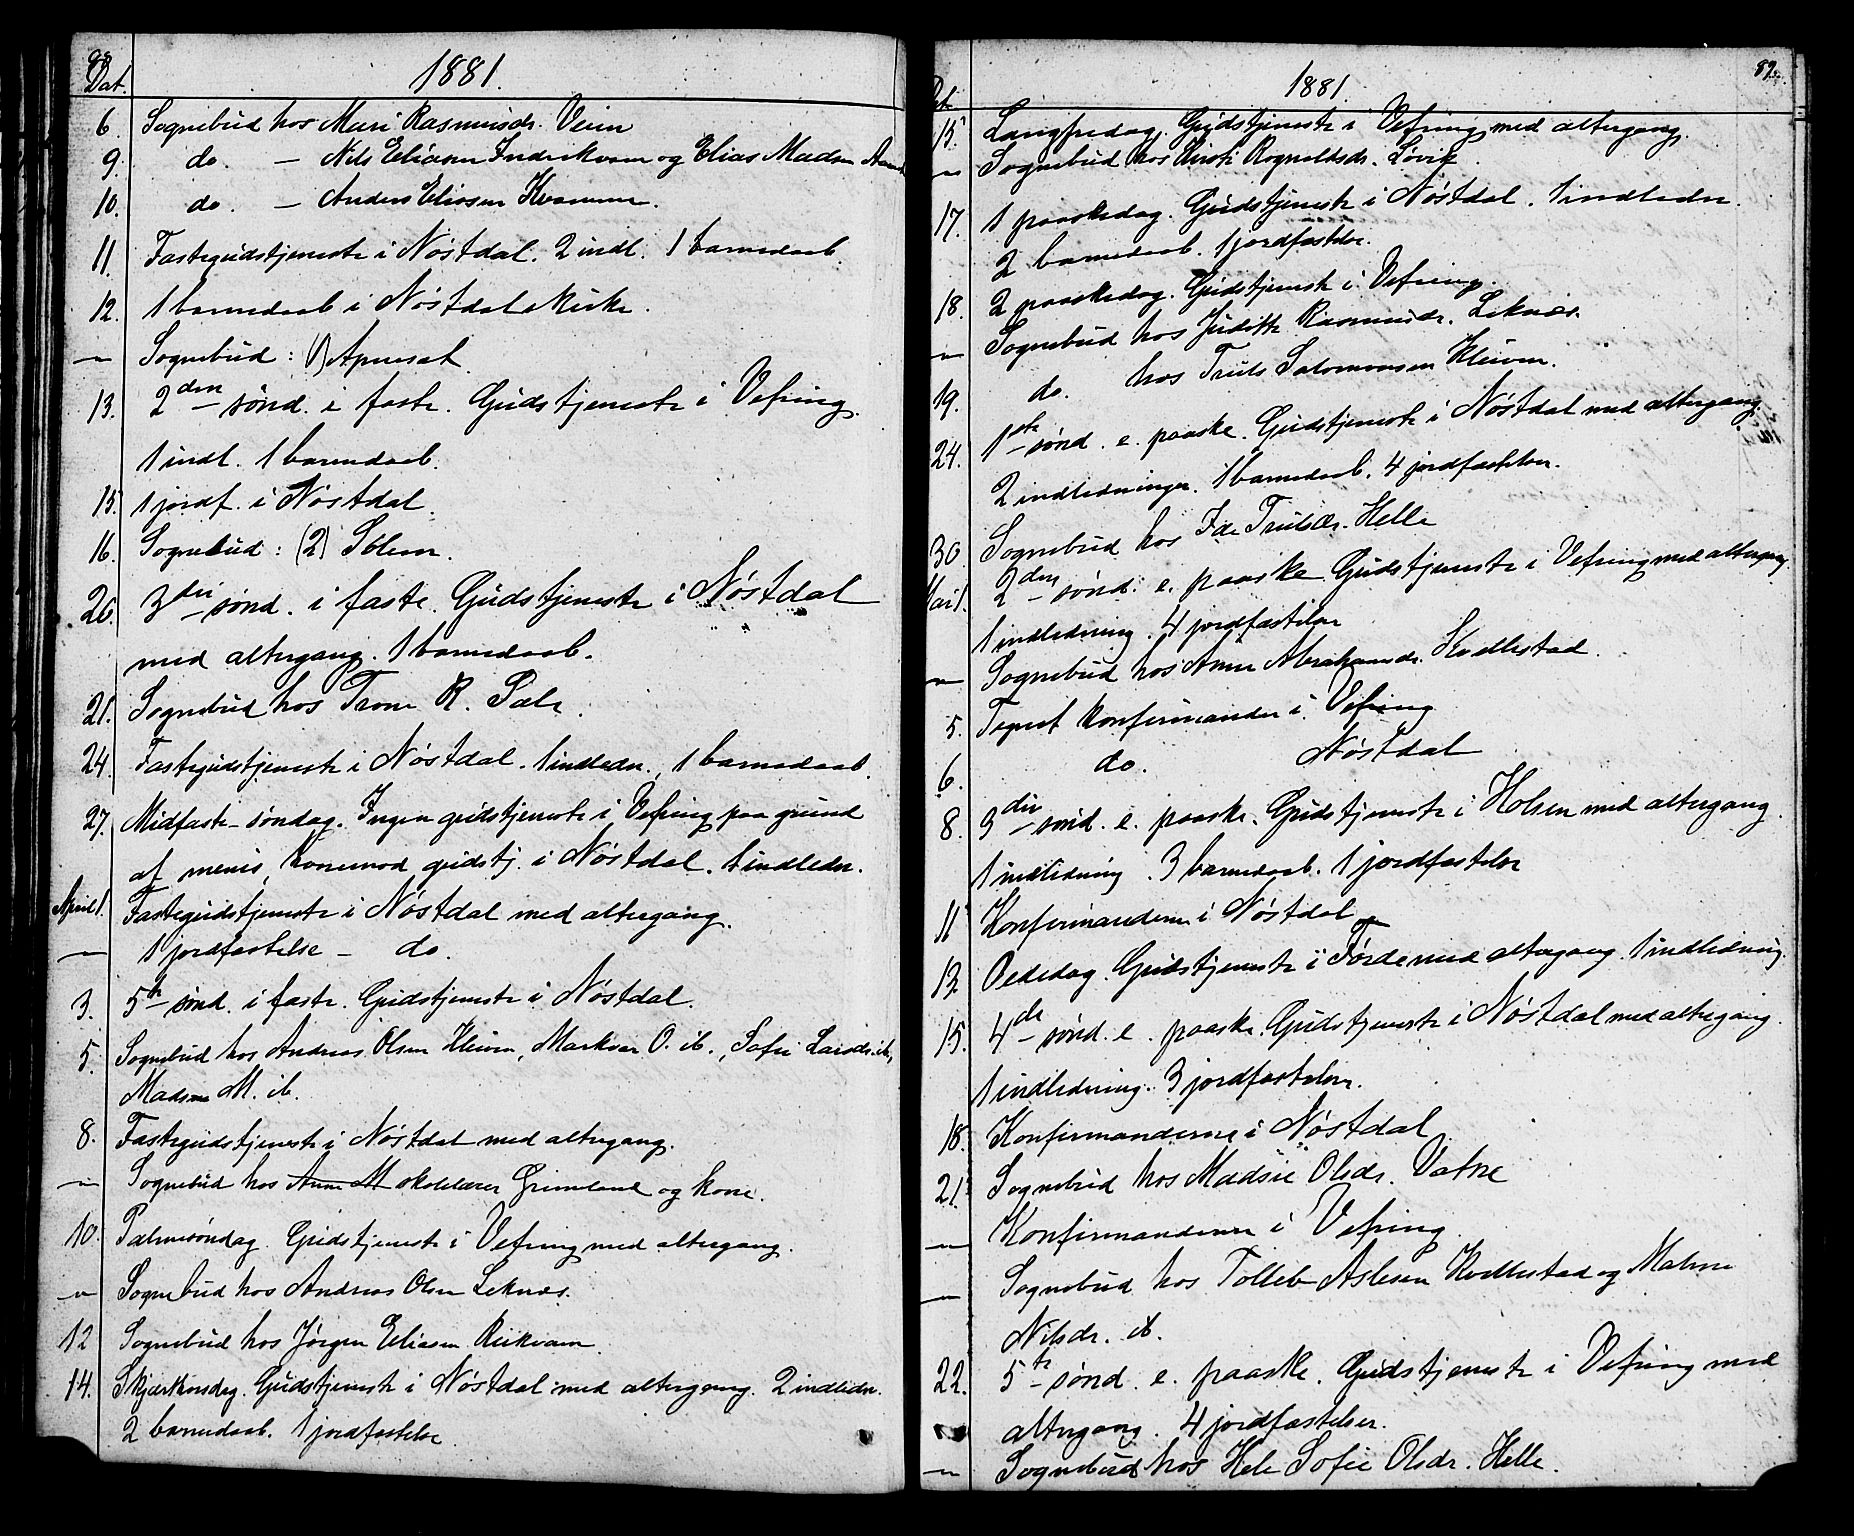 88
Dat. 1881.
6. Sognebud hos Mari Rasmusdr. Veien
9. do. — Nils Eliasen Inderkvam og Elias Madsen
10. do. — Anders Eliasen Kvamme.
11. Fastegudstjeneste i Nøstdal. 2 indl. 1 barnedaab.
12. 1 barnedaab i Nøstdals kirke.
— Sognebud: (1)
13. 2den sønd. i faste. Gudstjeneste i Vefring.
1 indl. 1 barnedaab.
15. 1 jordf. i Nøstdal.
16. Sognebud: (2) Solem.
20. 3die sønd. i faste. Gudstjeneste i Nøstdal
med altergang. 1 barnedaab.
21. Sognebud hos R.
24. Fastegudstjeneste i Nøstdal. 1 indledn., 1 barnedaab.
27. Midfaste-søndag. Ingen gudstjeneste i Vefring paa grund
af menis, hvorimod gudstj. i Nøstdal. 1 indledn.
April 1. Fastegudstjeneste i Nøstdal med altergang.
— 1 jordfæstelse — do.
3. 5te sønd. i faste. Gudstjeneste i Nøstdal.
5. Sognebud hos Andreas Olsen Kleiven, O. ib., Sofie Larsdr. ib.,
M. ib.
8. Fastegudstjeneste i Nøstdal med altergang.
— Sognebud hos Anne M skolelærer Grimeland og kone.
10. Palmesøndag. Gudstjeneste i Vefring med altergang.
— Sognebud hos Andreas Olsen Leknæs.
12 Sognebud hos Jørgen Eliasen Reikvam.
14. Skjærtorsdag. Gudstjeneste i Nøstdal med altergang. 2 indledn.
2 barnedaab. 1 jordfæstelse.
89.
1881.
15. Langfredag. Gudstjeneste i Vefring med altergang.
— Sognebud hos Kirsti Rognaldsdr. Løvik.
17. 1 paaskedag. Gudstjeneste i Nøstdal. 1 indledn.
2 barnedaab. 1 jordfæstelse.
18. 2 paaskedag. Gudstjeneste i Vefring.
— Sognebud hos Judith Rasmusdr. Leknæs.
19. do. hos Truls Salomonsen Kleiven.
24. 1ste sønd. e. paaske. Gudstjeneste i Nøstdal med altergang.
2 indledninger. 1 barnedaab. 4 jordfæstelser.
30 Sognebud hos Ida Trulsdr. Helle
Mai 1. 2den sønd. e. paaske Gudstjeneste i Vefring med altergang.
1 indledning. 4 jordfæstelser
— Sognebud hos Anne Abrahamsdr. Kvellestad.
5. Tegnet konfirmander i Vefring
6. do. Nøstdal
8. 3die sønd. e. paaske. Gudstjeneste i Holsen med altergang.
1 indledning. 3 barnedaab. 1 jordfæstelse
11 Konfirmanderne i Nøstdal
13. Bededag. Gudstjeneste i Førde med altergang. 1 indledning.
15. 4de sønd. e. paaske. Gudstjeneste i Nøstdal med altergang.
1 indledning. 3 jordfæstelser.
18. Konfirmanderne i Nøstdal.
21. Sognebud hos Madsie Olsdr. Vatne
— Konfirmanderne i Vefring.
— Sognebud hos Tolleb Aslesen Kvellestad og Malene
Nilsdr. ib.
22. 5te sønd. e. paaske. Gudstjeneste i Vefring med
altergang. 4 jordfæstelser.
— Sognebud hos Sofie Olsdr. Helle.